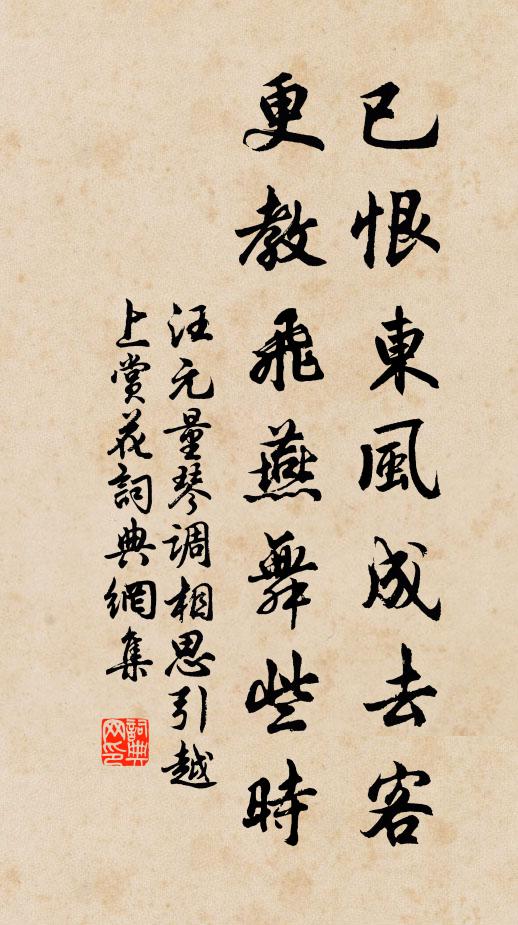 已恨東風成去客
更教飛燕舞些時
汪元量琴調相思引越
上賞花詞典網集
詞典
网印